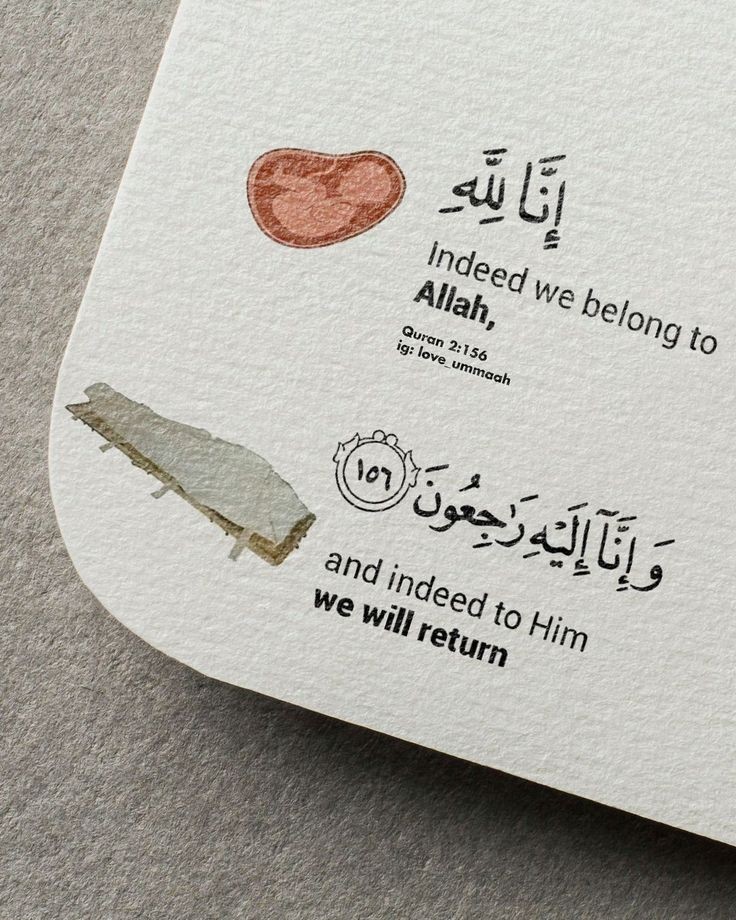 إِنَّا لِلَّهِ
Indeed we belong to
Allah,
Quran 2:156
ig: love_ummaah
وَإِنَّآ إِلَيْهِ رَٰجِعُونَ ١٥٦
and indeed to Him
we will return